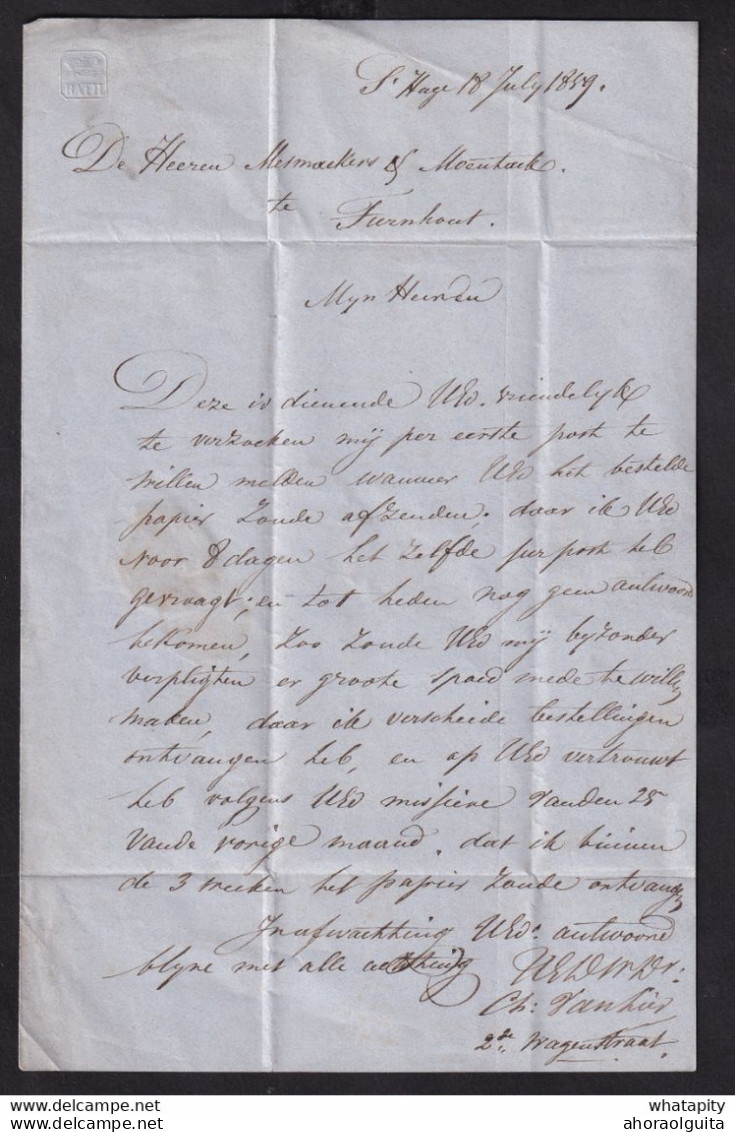 BATH
S' Hage 18 July 1859.
De Heeren Mesmaekers & Moentack.
te
Turnhout.
Myn Heeren
Deze is dienende UEd. vriendelyk
te verzoeken mij per eerste post te
willen melden wanneer UEd het bestelde
papier zoude afzenden, daar ik UEd
voor 8 dagen het zelfde per post heb
gevraagt; en tot heden nog geen antwoord
bekomen, zoo zoude UEd mij byzonder
verpligten er groote spoed mede te willen
maken, daar ik verscheide bestellingen
ontvangen heb, en op UEd vertrouwt
heb volgens UEd missieve vanden 25
vande vorige maand, dat ik binnen
de 3 weeken het papier zoude ontvangen
In afwachting UEd. antwoord
blyve met alle achting UEDWDr.
Ch: Vanlier
2de Wagenstraat.
whatapity
ahoraolguita